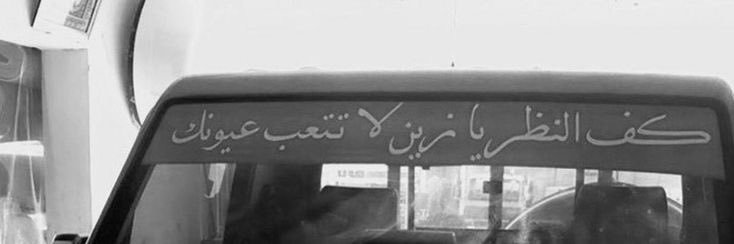 كف النظر يا زين لا تتعب عيونك